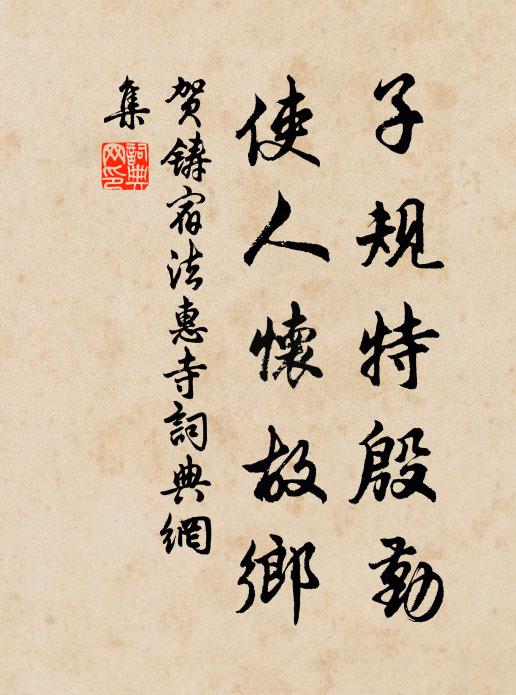 子規特殷勤
使人懷故鄉
賀鑄宿法惠寺詞典網
集
詞典網印